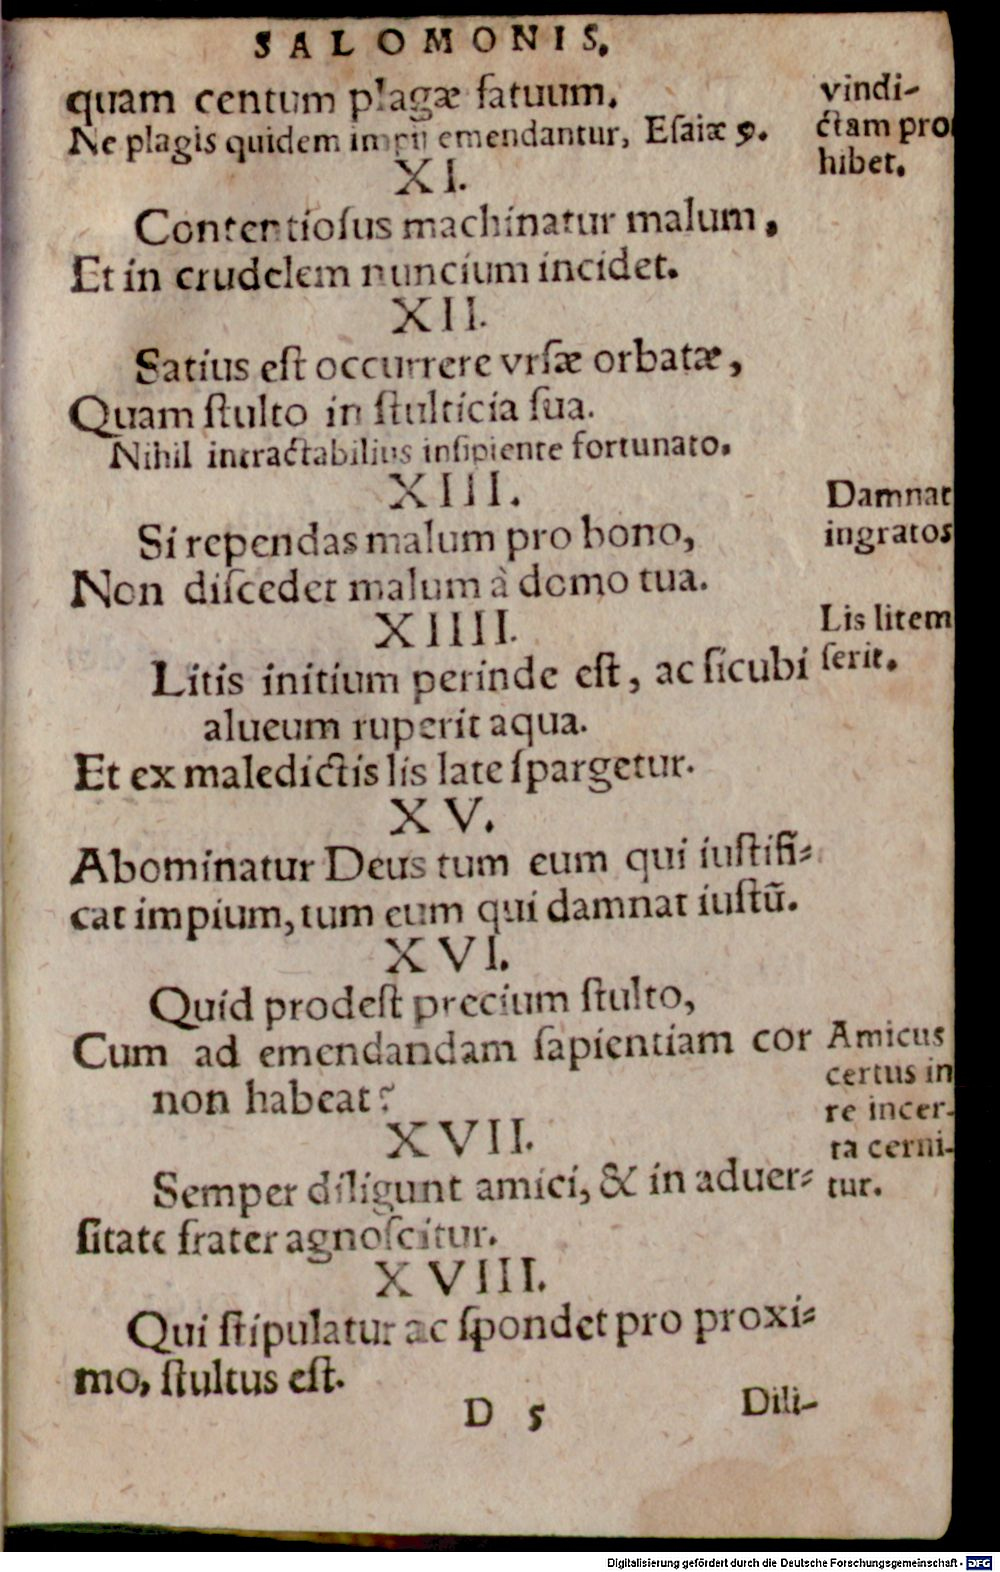 SALOMONIS.
quam centum plagæ fatuum.
Ne plagis quidem impij emendantur, Esaiæ 9.
vindi-
ctam pro
hibet.
XI.
Contentiosus machinatur malum,
Et in crudelem nuncium incidet.
XII.
Satius est occurrere vrsæ orbatæ,
Quam stulto in stulticia sua.
Nihil intractabilius insipiente fortunato.
XIII.
Si rependas malum pro bono,
Non discedet malum à domo tua.
Damnat
ingratos
XIIII.
Litis initium perinde est, ac sicubi
alueum ruperit aqua.
Et ex maledictis lis late spargetur.
Lis litem
serit.
XV.
Abominatur Deus tum eum qui iustifi-
cat impium, tum eum qui damnat iustũ.
XVI.
Quid prodest precium stulto,
Cum ad emendandam sapientiam cor
non habeat?
XVII.
Semper diligunt amici, & in aduer-
sitate frater agnoscitur.
Amicus
certus in
re incer-
ta cerni-
tur.
XVIII.
Qui stipulatur ac spondet pro proxi-
mo, stultus est.
D 5
Dili-
Digitalisierung gefördert durch die Deutsche Forschungsgemeinschaft - DFG